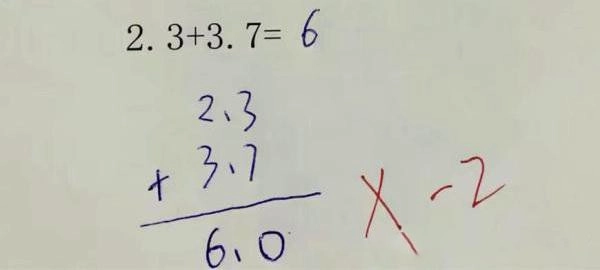 2.3+3.7= 6
2.3
+ 3.7
6.0
X -2